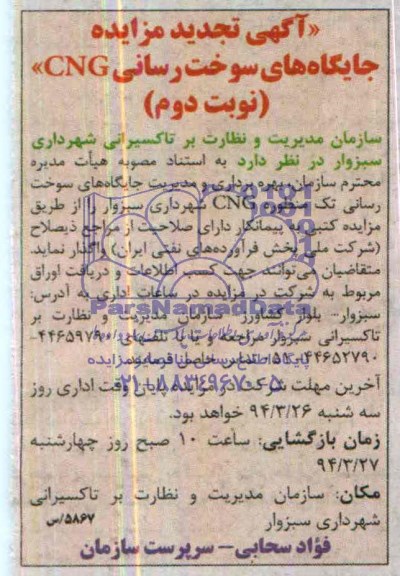 «آگهی تجدید مزایده
جایگاه‌های سوخت رسانی CNG»
(نوبت دوم)
سازمان مدیریت و نظارت بر تاکسیرانی شهرداری
سبزوار در نظر دارد به استناد مصوبه هیأت مدیره
محترم سازمان بهره برداری و مدیریت جایگاه‌های سوخت
رسانی تک منظوره CNG شهرداری سبزوار را از طریق
مزایده کتبی به پیمانکار دارای صلاحیت از مراجع ذیصلاح
(شرکت ملی پخش فرآورده‌های نفتی ایران) واگذار نماید.
متقاضیان می‌توانند جهت کسب اطلاعات و دریافت اوراق
مربوط به شرکت در مزایده در ساعات اداری به آدرس:
ParsNamadData
سبزوار- بلوار کشاورز- سازمان مدیریت و نظارت بر
تاکسیرانی سبزوار مراجعه و یا با تلفنهای
۴۴۶۵۲۷۹۰-۰۵۱ تماس حاصل فرمایند.
۰۲۱-۸۸۳۴۹۶۷۰-۵
آخرین مهلت شرکت در مزایده پایان وقت اداری روز
سه شنبه ۹۴/۳/۲۶ خواهد بود.
زمان بازگشایی: ساعت ۱۰ صبح روز چهارشنبه
۹۴/۳/۲۷
مکان: سازمان مدیریت و نظارت بر تاکسیرانی
شهرداری سبزوار
۵۸۶۷/س
فؤاد سحابی- سرپرست سازمان